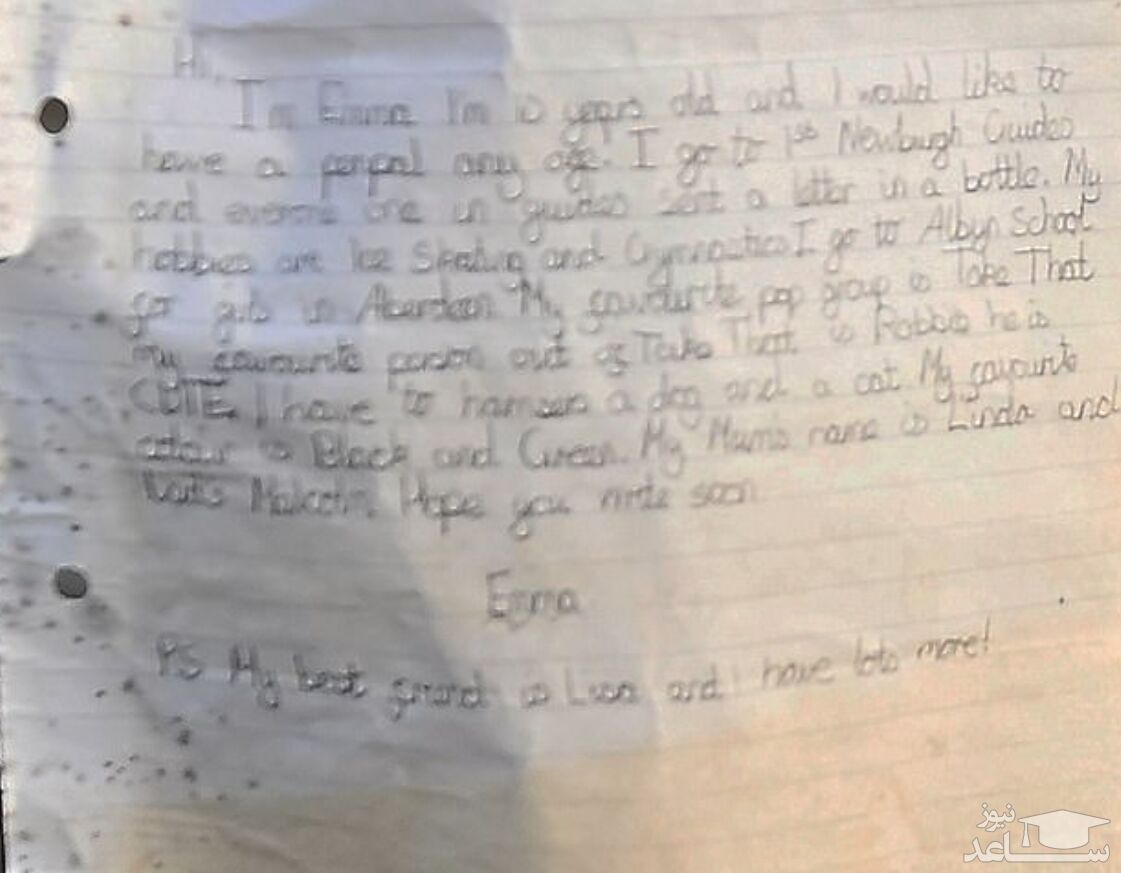 Hi,
I'm Emma I'm 10 years old and I would like to
have a penpal any age. I go to 1st Newburgh Guides
and one in guides sent a letter in a bottle. My
hobbies are Ice Skating and Gymnastics I go to Albyn School
for girls in Aberdeen. My favourite pop group is Take That
my favourite person out of Take That is Robbie he is
CUTE. I have to a dog and a cat My favourite
colour is Black and Green. My Mum's name is Linda and
Dad's Malcolm. Hope you write soon
Emma
PS My best freind is and I have lots more!
نیوز
ساعد